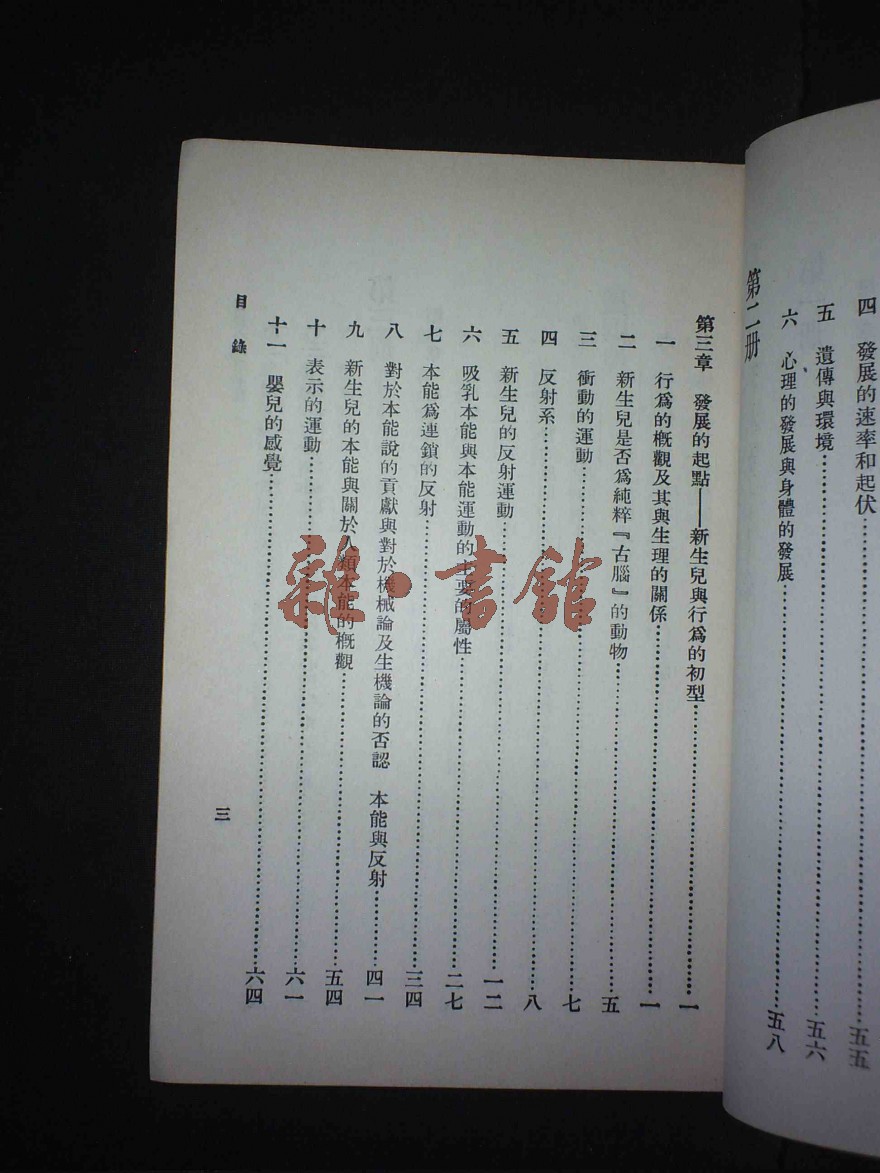 四　發展的速率和起伏……五五
五　遺傳與環境……五六
六　心理的發展與身體的發展……五八
第二册
第三章　發展的起點——新生兒與行爲的初型……一
一　行爲的槪觀及其與生理的關係……一
二　新生兒是否爲純粹『古腦』的動物……五
三　衝動的運動……七
四　反射系……八
五　新生兒的反射運動……一二
六　吸乳本能與本能運動的主要的屬性……二七
七　本能爲連鎖的反射……三四
八　對於本能說的貢獻與對於機械論及生機論的否認　本能與反射……四一
九　新生兒的本能與關於人類本能的槪觀……五四
十　表示的運動……六一
十一　嬰兒的感覺……六四
目錄
三
雜·書館